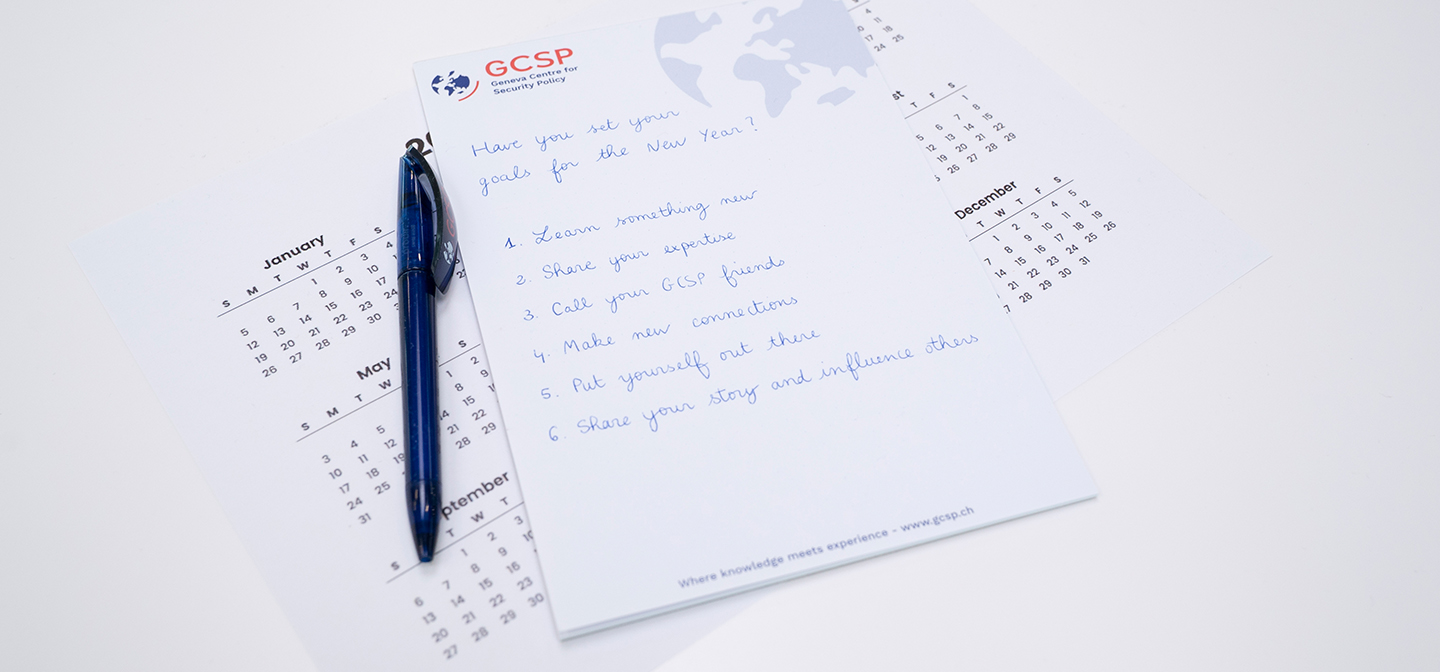 GCSP
Geneva Centre for
Security Policy
Have you set your
goals for the New Year?
1. Learn something new
2. Share your expertise
3. Call your GCSP friends
4. Make new connections
5. Put yourself out there
6. Share your story and influence others
Where knowledge meets experience - www.gcsp.ch
January
S M T W T F S
1 2 3 4
5 6 7 8 9 10
12 13 14 15 16 17
19 20 21 22 23 24
26 27 28 29 30
May
S M T W S
1 2
3 4 5 8 9
10 11 12 14 15
17 18 19 21 22
24 25 28 29
31
ptember
S T W T
1 2 3
6 7 8 9
13 14 15 16
20 21 22 23
27 28 29 30
4
11
17 18
24 25
st
T F S
1
5 6 7 8
12 13 14 15
19 20 21 22
26 27 28 29
December
T W T F S
1 2 3 4 5
7 8 9 10 11 12
14 15 16 17 18 19
21 22 23 24 25 26
28 29 30 31